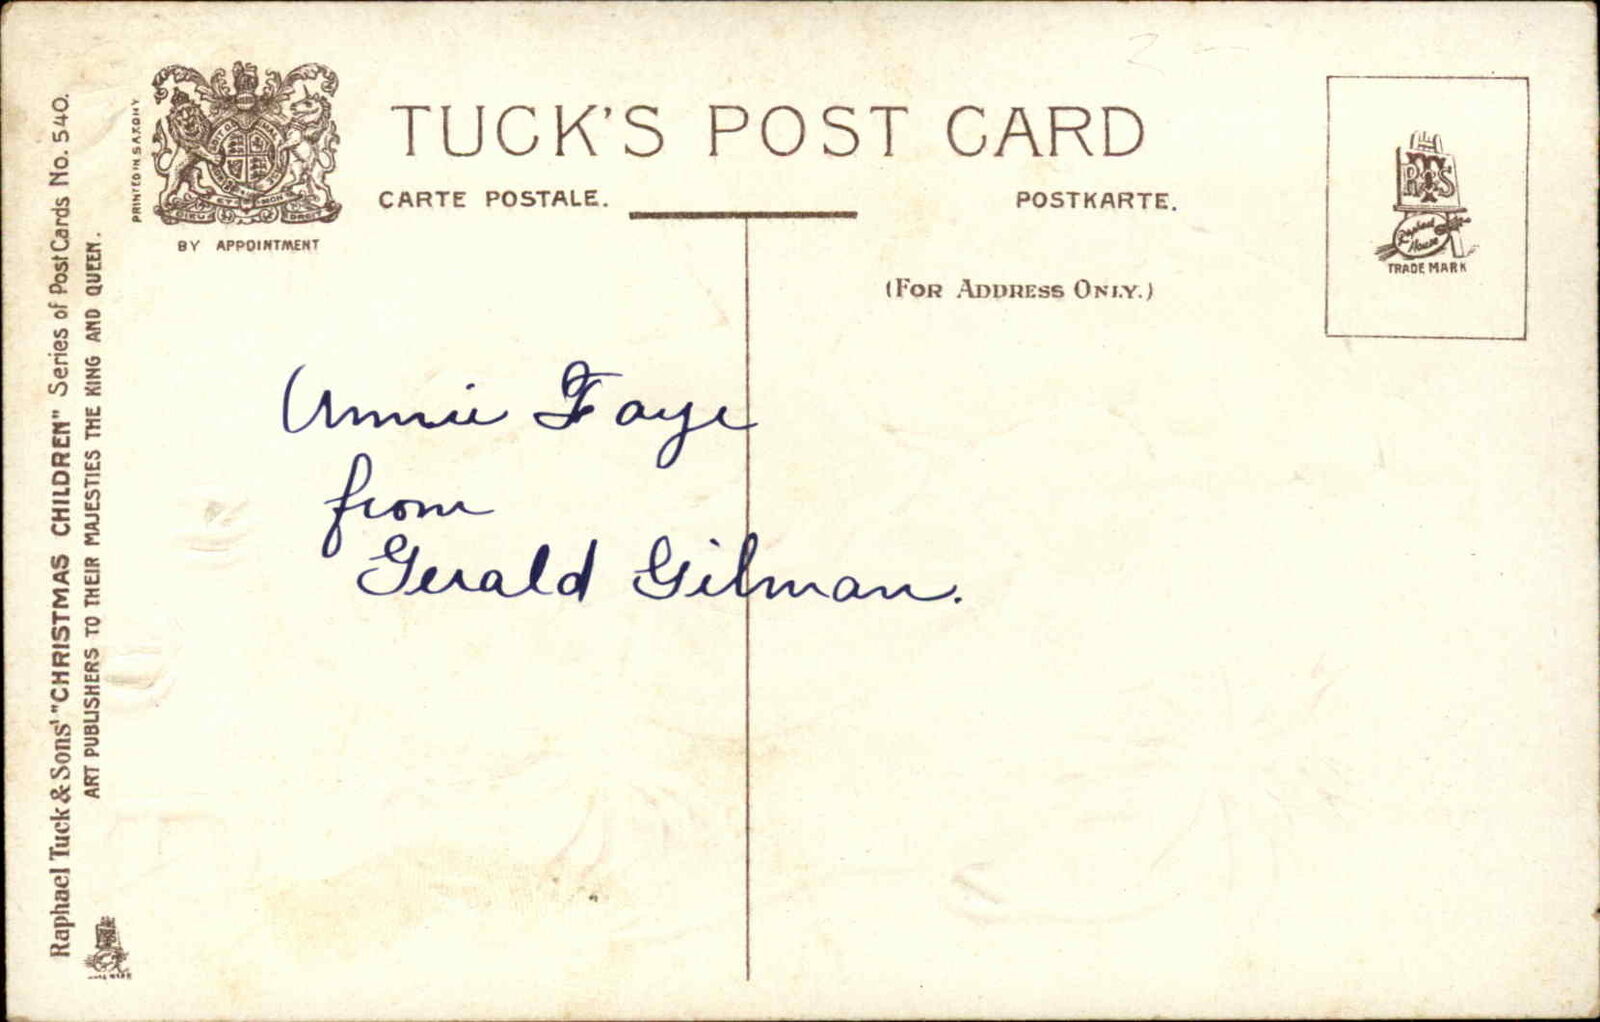 Raphael Tuck & Sons' "CHRISTMAS CHILDREN" Series of Post Cards No. 540.
ART PUBLISHERS TO THEIR MAJESTIES THE KING AND QUEEN.
PRINTED IN SAXONY
BY APPOINTMENT
TUCK'S POST CARD
CARTE POSTALE.
POSTKARTE.
(FOR ADDRESS ONLY.)
RTS
Raphael
House
TRADE MARK
Annie Faye
from
Gerald Gilman.